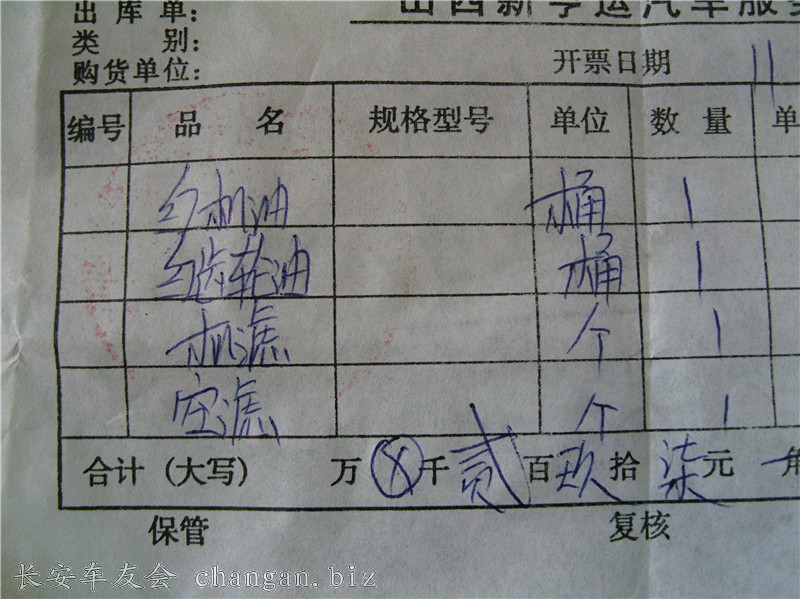 出库单:
山西新亨运汽车服务
类 别:
购货单位:
开票日期 11
编号 品 名 规格型号 单位 数 量 单
机油 桶 1
齿轮油 桶 1
机滤 个 1
空滤 个 1
合计(大写) 万 千 贰 百 玖 拾 柒 元 角
保管 复核
长安车友会 changan.biz